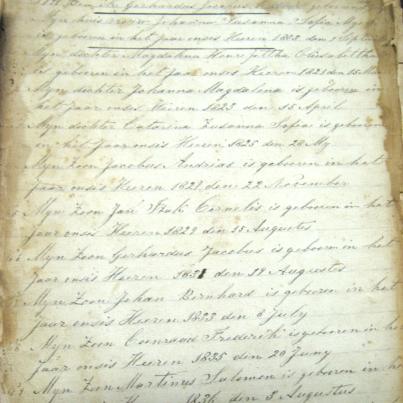 Gerhardus Jacobus
Myn huis vrouw Johanna Susanna Sofia
is geboren in het jaar onses Heeren 1803 den 1 Sept
Myn dochter Magdalena
is geboren in het jaar onses Heeren 1821 den 15
Myn dochter Johanna Magdalena is geboren in
het jaar onses Heeren 1823 den 15 April
Myn dochter Catarina Susanna Sofia is geboren
in het jaar onses Heeren 1825 den 26 My
Myn Zoon Jacobus Andrias is geboren in het
Jaar onsis Heeren 1828 den 22 November
Myn Zoon Jan Izak Cornelis is geboren in het
jaar onsis Heeren 1829 den 15 Augustes
Myn Zoon Gerhardus Jacobus is geboren in het
Jaar onsis Heeren 1831 den 19 Augustes
Myn Zoon Johan Bernhard is geboren in het
jaar onsis Heeren 1833 den 6 July
Myn Zoon Coenraad Frederik is geboren in he
jaar onsis Heeren 1835 den 20 Juny
Myn Zoon Martinus Salomon is geboren in he
Heeren 1836 den 3 Augustes